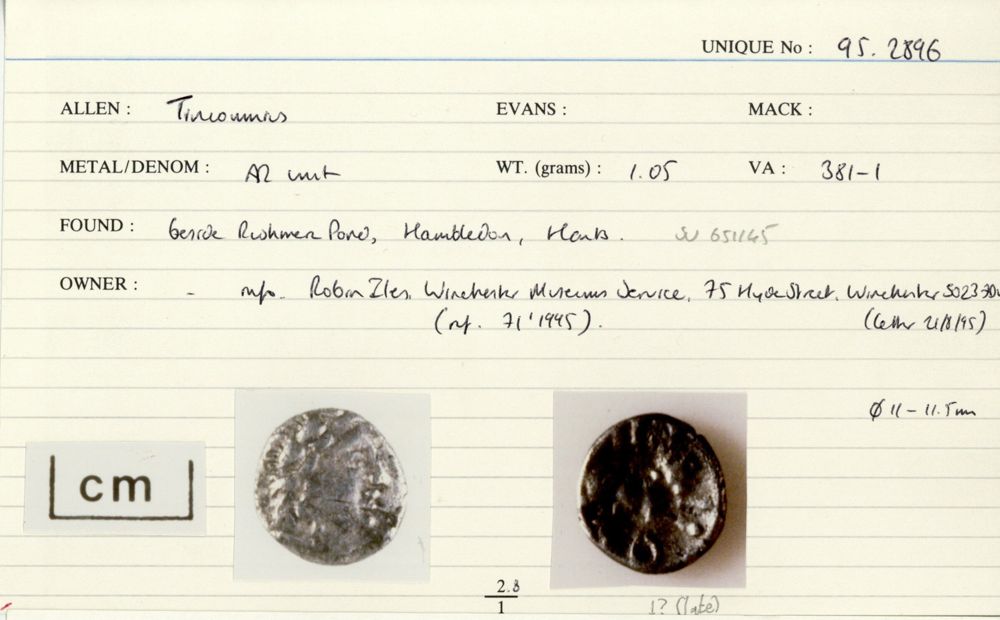 UNIQUE No : 95.2896
ALLEN : Tincommius EVANS : MACK :
METAL/DENOM : AR unit WT. (grams) : 1.05 VA : 381-1
FOUND : beside Rushmere Pond, Hambledon, Hants. SU 651145
OWNER : - info. Robin Iles, Winchester Museums Service, 75 Hyde Street, Winchester SO23 7DW
(ref. 71'1995). (letter 21/8/95)
Ø 11-11.5mm
cm
2.8
1
1? (late)